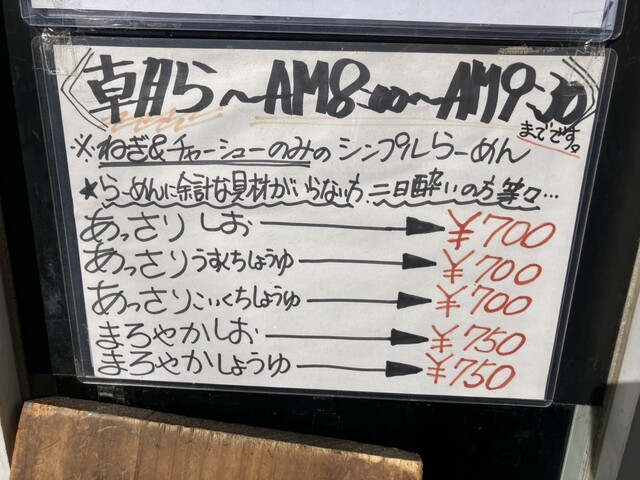 朝ら〜AM8:00〜AM9:30
までです。
※ねぎ&チャーシューのみのシンプルらーめん
★らーめんに余計な具材がいらない方、二日酔いの方等々…
あっさりしお→¥700
あっさりうすくちしょうゆ→¥700
あっさりこいくちしょうゆ→¥700
まろやかしお→¥750
まろやかしょうゆ→¥750